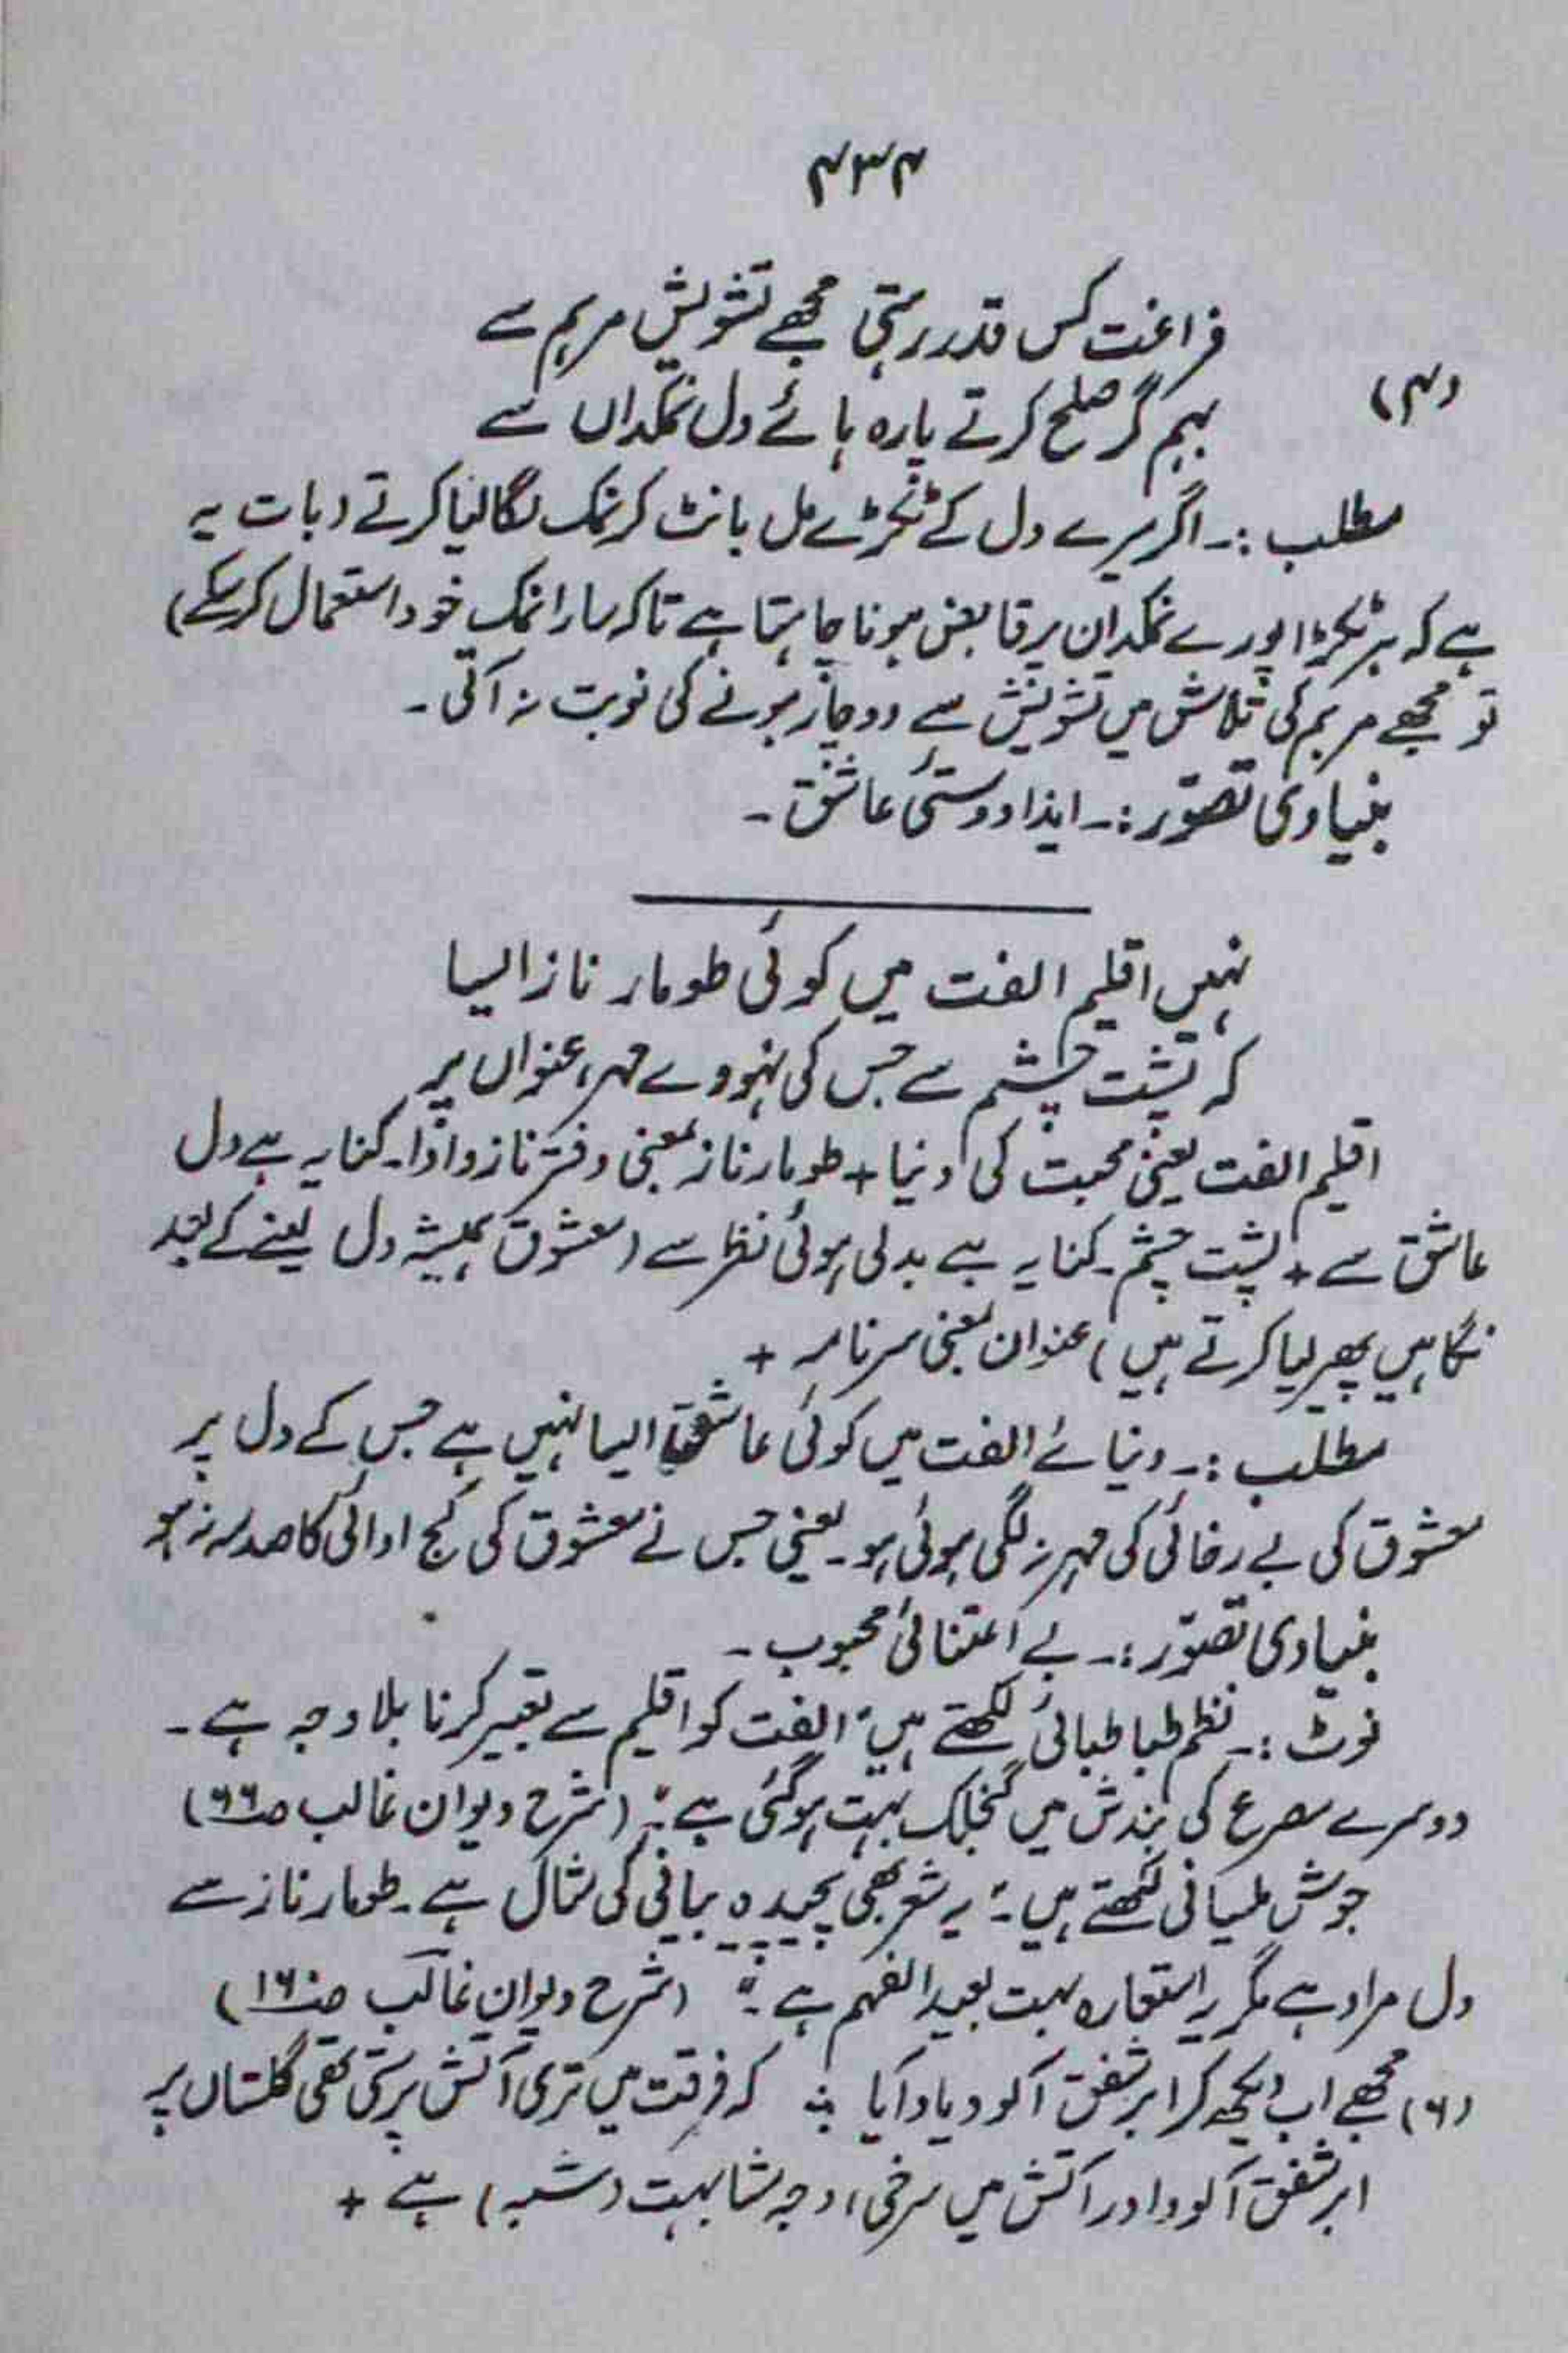 ۴۳۴
فراغت کس قدر رہتی مجھے تشویش مرہم سے
(۴)
بہم گر صلح کرتے پارہ ہائے دل نمکداں سے
مطلب :۔ اگر میرے دل کے ٹکڑے مل بانٹ کر نمک لگا لیا کرتے (بات یہ
ہے کہ ہر ٹکڑا پورے نمکدان پر قابض ہونا چاہتا ہے تاکہ سارا نمک خود استعمال کر سکے)
تو مجھے مرہم کی تلاش میں تشویش سے دوچار ہونے کی نوبت نہ آتی۔
بنیادی تصوّر :۔ ایذا دوستیٔ عاشق۔
نہیں اقلیم الفت میں کوئی طومار ناز ایسا
کہ پشت چشم سے جس کی نہووے مہر، عنواں پر
اقلیم الفت یعنی محبت کی دنیا + طومار ناز بمعنی دفتر ناز و ادا۔ کنایہ ہے دل
عاشق سے + پشت چشم۔ کنایہ ہے بدلی ہوئی نظر سے (معشوق ہمیشہ دل لینے کے بعد
نگاہیں پھیر لیا کرتے ہیں) عنوان بمعنی سرنامہ +
مطلب :۔ دنیائے الفت میں کوئی عاشق ایسا نہیں ہے جس کے دل پر
معشوق کی بے رخائی کی مہر نہ لگی ہوئی ہو۔ یعنی جس نے معشوق کی کج ادائی کا صدمہ نہ ہو
بنیادی تصوّر :۔ بے اعتنائیٔ محبوب۔
نوٹ :۔ نظم طباطبائی لکھتے ہیں "الفت کو اقلیم سے تعبیر کرنا بلا وجہ ہے۔
دوسرے مصرع کی بندش میں گنجلک بہت ہو گئی ہے۔" (شرح دیوان غالب ص۶۶)
جوش ملسیانی لکھتے ہیں :۔ "یہ شعر بھی پیچیدہ بیانی کی مثال ہے۔ طومار ناز سے
دل مراد ہے مگر یہ استعارہ بہت بعید الفہم ہے۔" (شرح دیوان غالب ص۱۶۰)
(۶) مجھے اب دیکھ کر ابر شفق آلود یاد آیا ؛ کہ فرقت میں تری آتش برستی تھی گلستاں پر
ابر شفق آلود اور آتش میں سرخی، وجہ مشابہت (شبہ) ہے +